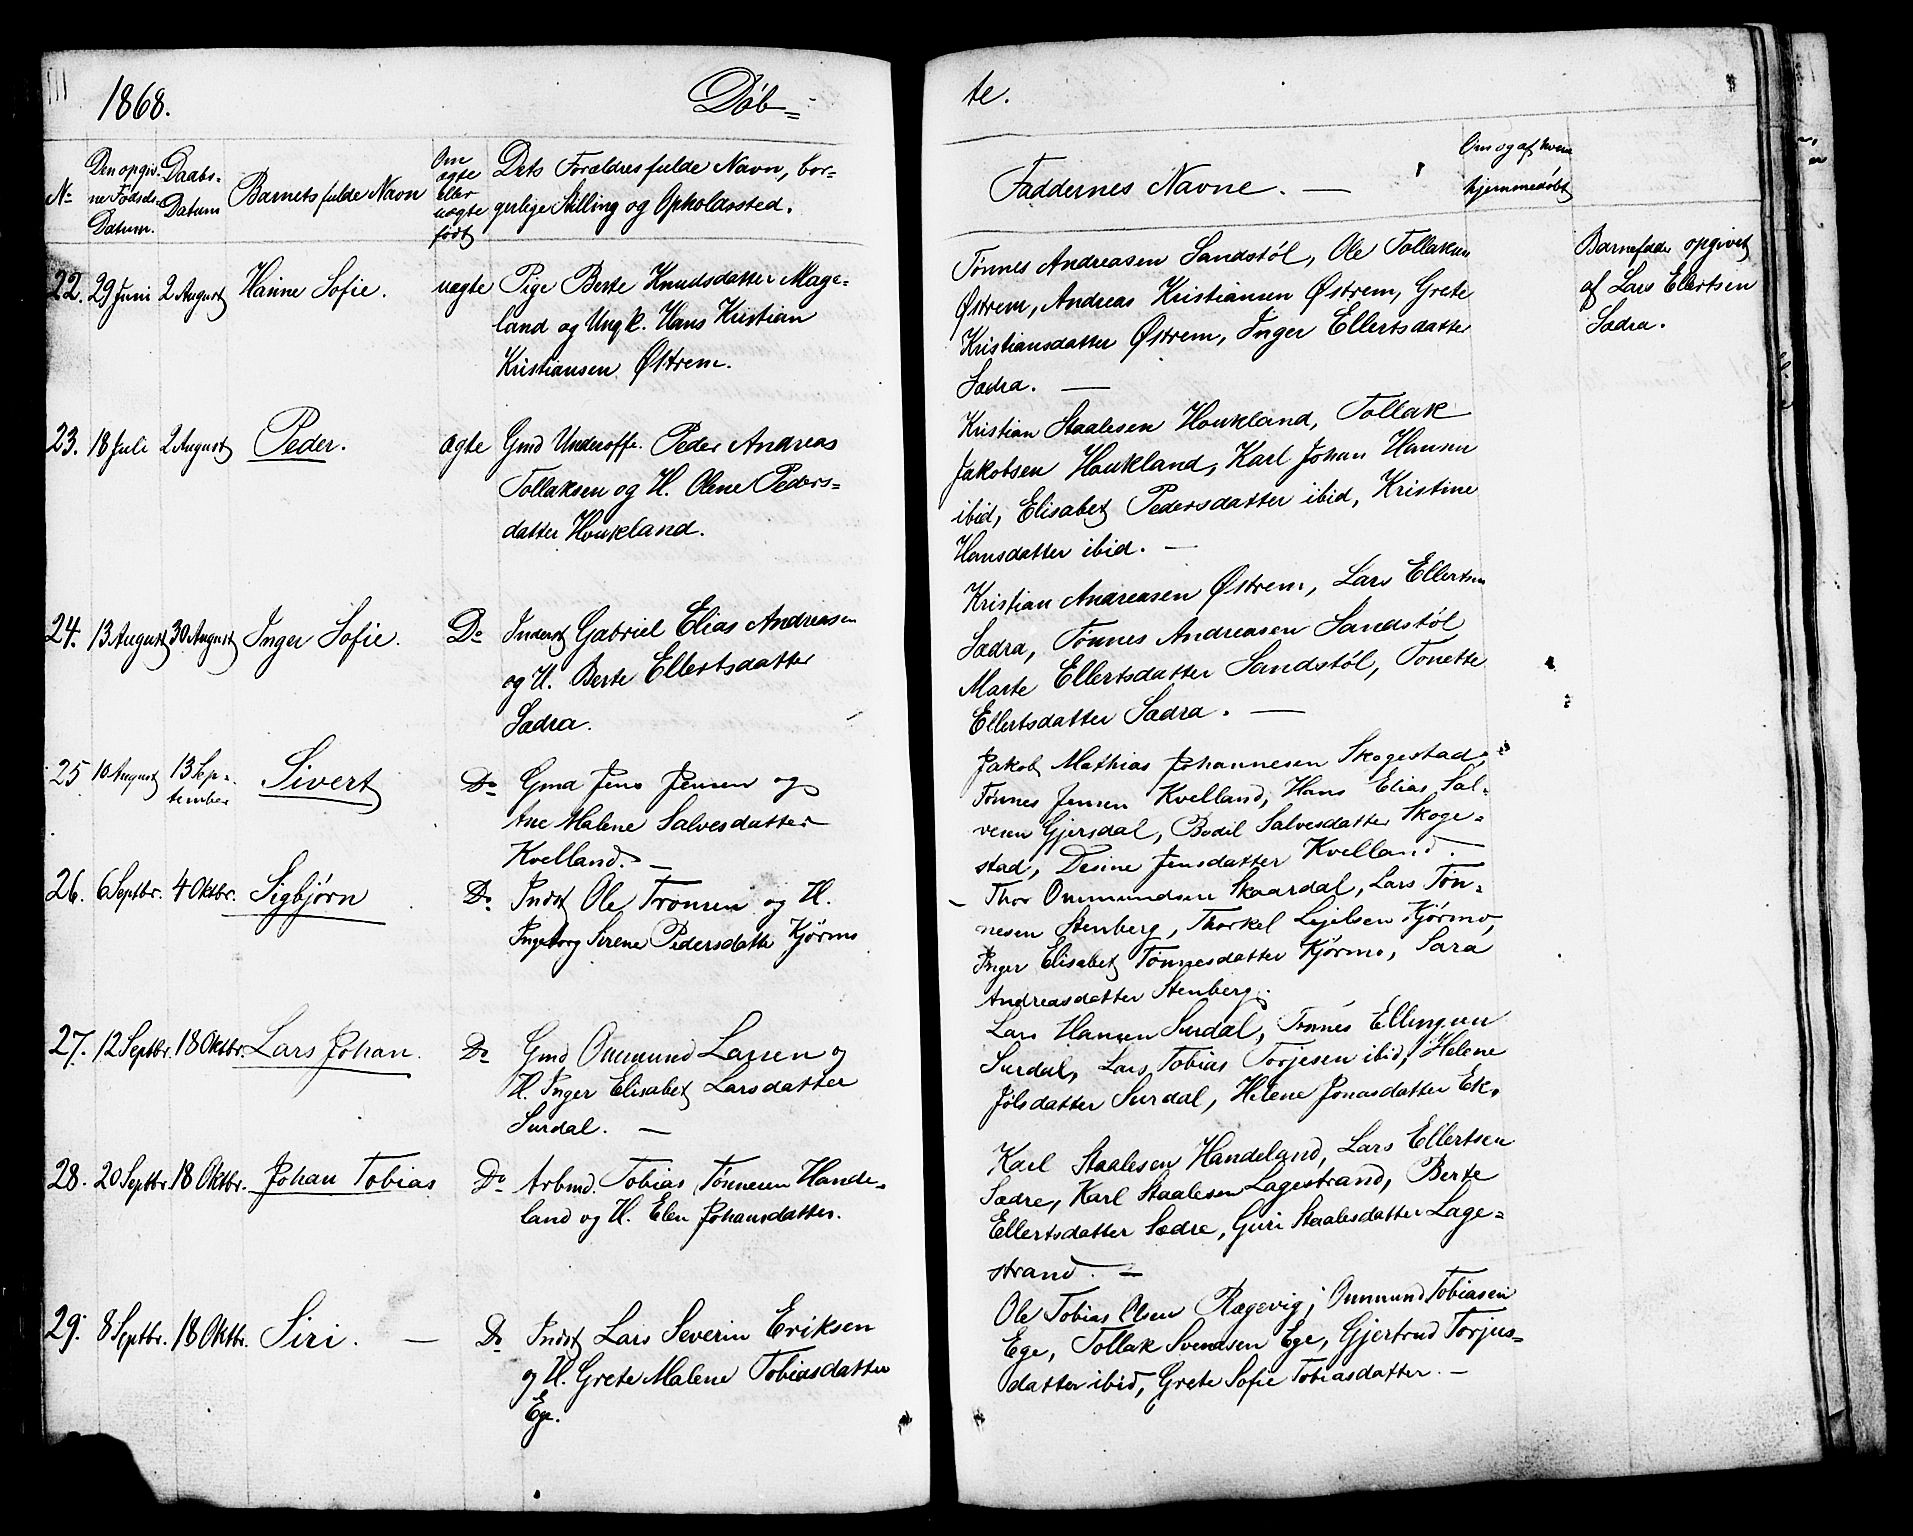 1868. Døb=
te.
No Den opgiv. Daabs- Barnets fulde Navn Om Dets Forældres fulde Navn, bor-
ne Fødsels Datum ægte gerlige Stilling og Opholdssted.
Datum. eller
uægte
født
Faddernes Navne. —
Om og af hvem
hjemmedøbt
22. 29 Juni 2 August Hanne Sofie. uægte Pige Berte Knudsdatter Mage-
land og Ungk. Hans Kristian
Kristiansen Østrem.
Tønnes Andreasen Sandstøl, Ole Tollaksen
Østrem, Andreas Kristiansen Østrem, Grete
Kristiansdatter Østrem, Inger Ellertsdatter
Sædra. —
Barnefader opgivet
af Lars Elertsen
Sædra.
23. 18 Juli 2 August Peder. ægte Gmd Underoffc. Peder Andreas
Tollaksen og H. Olene Peders-
datter Houkland.
Kristian Staalesen Houkland, Tollak
Jakobsen Houkland, Karl Johan Hansen
ibid, Elisabet Pedersdatter ibid, Kristine
Hansdatter ibid. —
24. 13 August 30 August Inger Sofie. Do Inderst Gabriel Elias Andreasen
og H. Berte Ellertsdatter
Sædra.
Kristian Andreasen Østrem, Lars Ellertsen
Sædra, Tønnes Andreasen Sandstøl
Marte Ellertsdatter Sandstøl, Tonette
Ellertsdatter Sædra. —
25 10 August 13 Sep- Sivert Do Gmd Jens Jensen og
tember Ane Malene Salvesdatter
Kvelland. —
Jakob Mathias Johannesen Skogestad,
Tønnes Jensen Kvelland, Hans Elias Sal-
vesen Gjersdal, Bodil Salvesdatter Skoge-
stad, Desine Jensdatter Kvelland. —
26. 6 Septbr. 4 Oktbr. Sigbjørn Do Indst Ole Tronsen og H.
Ingeborg Serene Pedersdatter Kjørmo
Thor Ommundsen Skaardal, Lars Tøn-
nesen Stenberg, Thorkel Lejelsen Kjørmo,
Inger Elisabet Tønnesdatter Kjørmo, Sara
Andreasdatter Stenberg.
27. 12 Septbr. 18 Oktbr. Lars Johan. Do Gmd Ommund Larsen og
H. Inger Elisabet Larsdatter
Surdal. —
Lars Hansen Surdal, Tønnes Ellingsen
Surdal, Lars Tobias Torjesen ibid, Helene
Jølsdatter Surdal, Helene Jonasdatter Ek.
28. 20 Septbr. 18 Oktbr. Johan Tobias Do Arbmd. Tobias Tønnesen Hande-
land og H. Elen Johansdatter.
Karl Staalesen Handeland, Lars Ellertsen
Sædre, Karl Staalesen Lagestrand, Berte
Ellertsdatter Sædre, Guri Staalesdatter Lage-
strand. —
29. 8 Septbr. 18 Oktbr. Siri. — Do Indst Lars Severin Eriksen
og H. Grete Malene Tobiasdatter
Ege.
Ole Tobias Olsen Rægevig, Ommund Tobiasen
Ege, Tollak Svendsen Ege, Gjertrud Torjus-
datter ibid, Grete Sofie Tobiasdatter. —